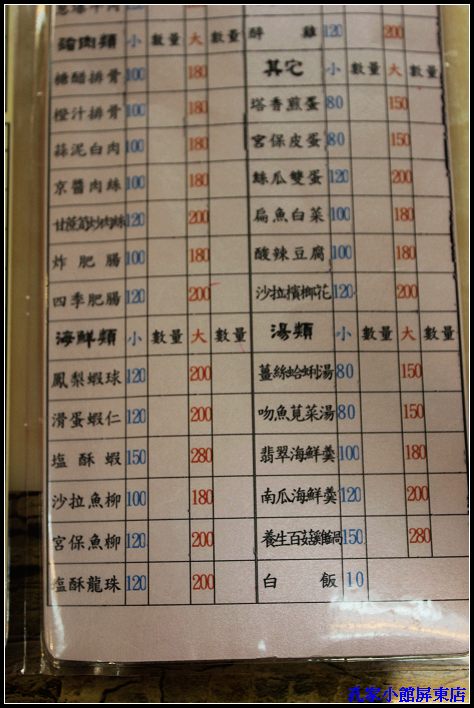 豬肉類 小 數量 大 數量
糖醋排骨 100 180
橙汁排骨 100 180
蒜泥白肉 100 180
京醬肉絲 100 180
甘蔗筍炒肉絲 120 200
炸肥腸 100 180
四季肥腸 120 200
海鮮類 小 數量 大 數量
鳳梨蝦球 120 200
滑蛋蝦仁 120 200
塩酥蝦 150 280
沙拉魚柳 100 180
宮保魚柳 120 200
塩酥龍珠 120 200
醉雞 120 200
其它 小 數量 大 數量
塔香煎蛋 80 150
宮保皮蛋 80 150
絲瓜雙蛋 120 200
扁魚白菜 100 180
酸辣豆腐 100 180
沙拉檳榔花 120 200
湯類 小 數量 大 數量
薑絲蛤蜊湯 80 150
吻魚莧菜湯 80 150
翡翠海鮮羹 100 180
南瓜海鮮羹 120 200
養生百菇雞鍋 150 280
白飯 10
孔家小館屏東店